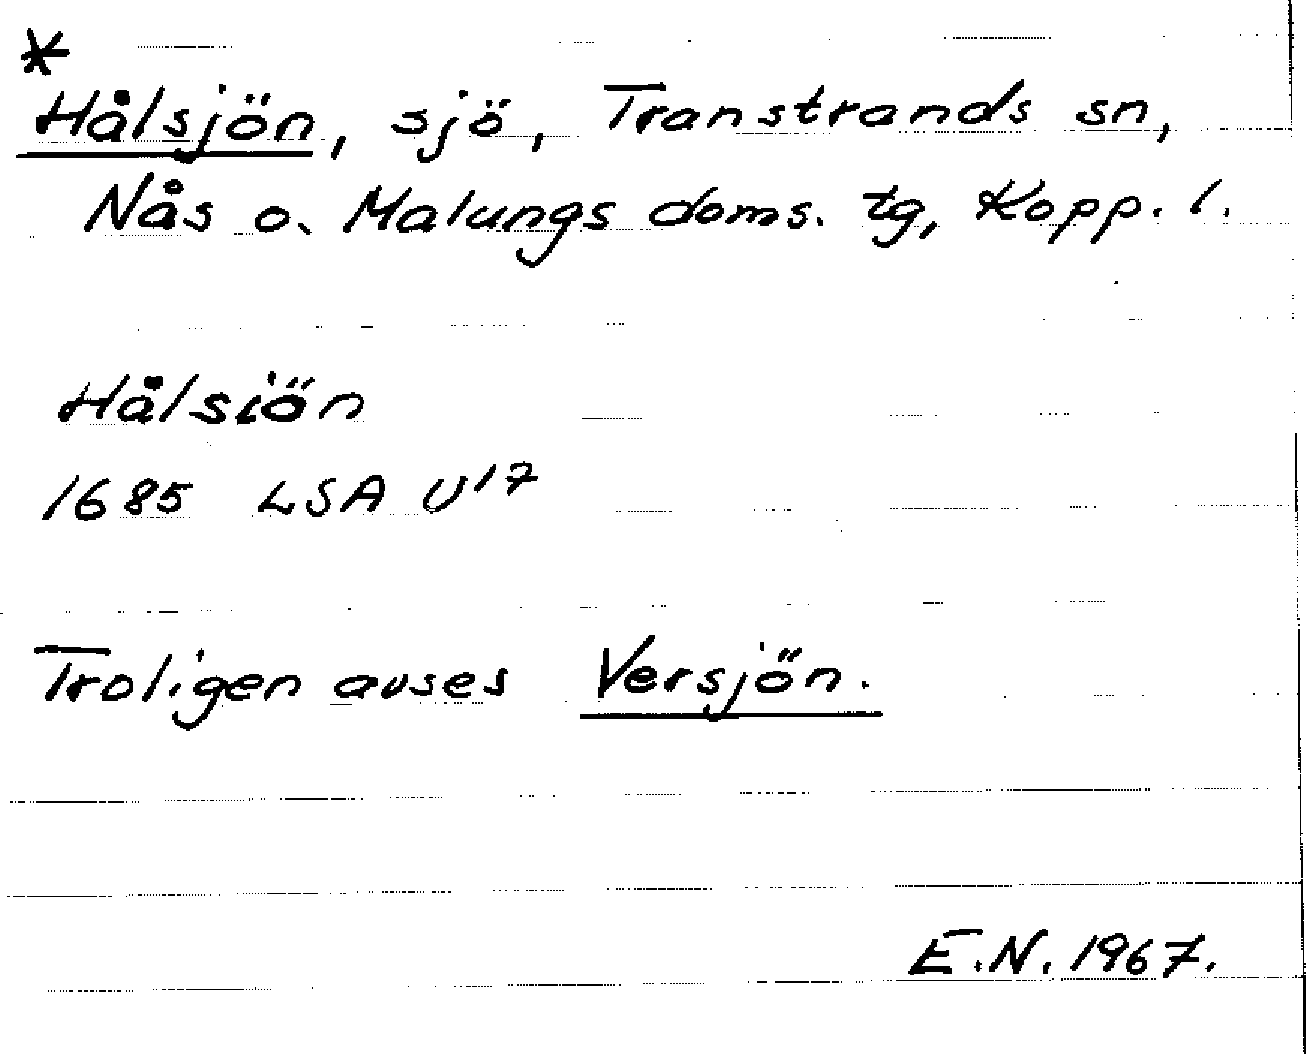 *
Hålsjön, sjö, Transtrands sn,
Nås o. Malungs doms. tg, Kopp. l.
Hålsiön
1685 LSA U17
Troligen avses Versjön.
E.N. 1967.